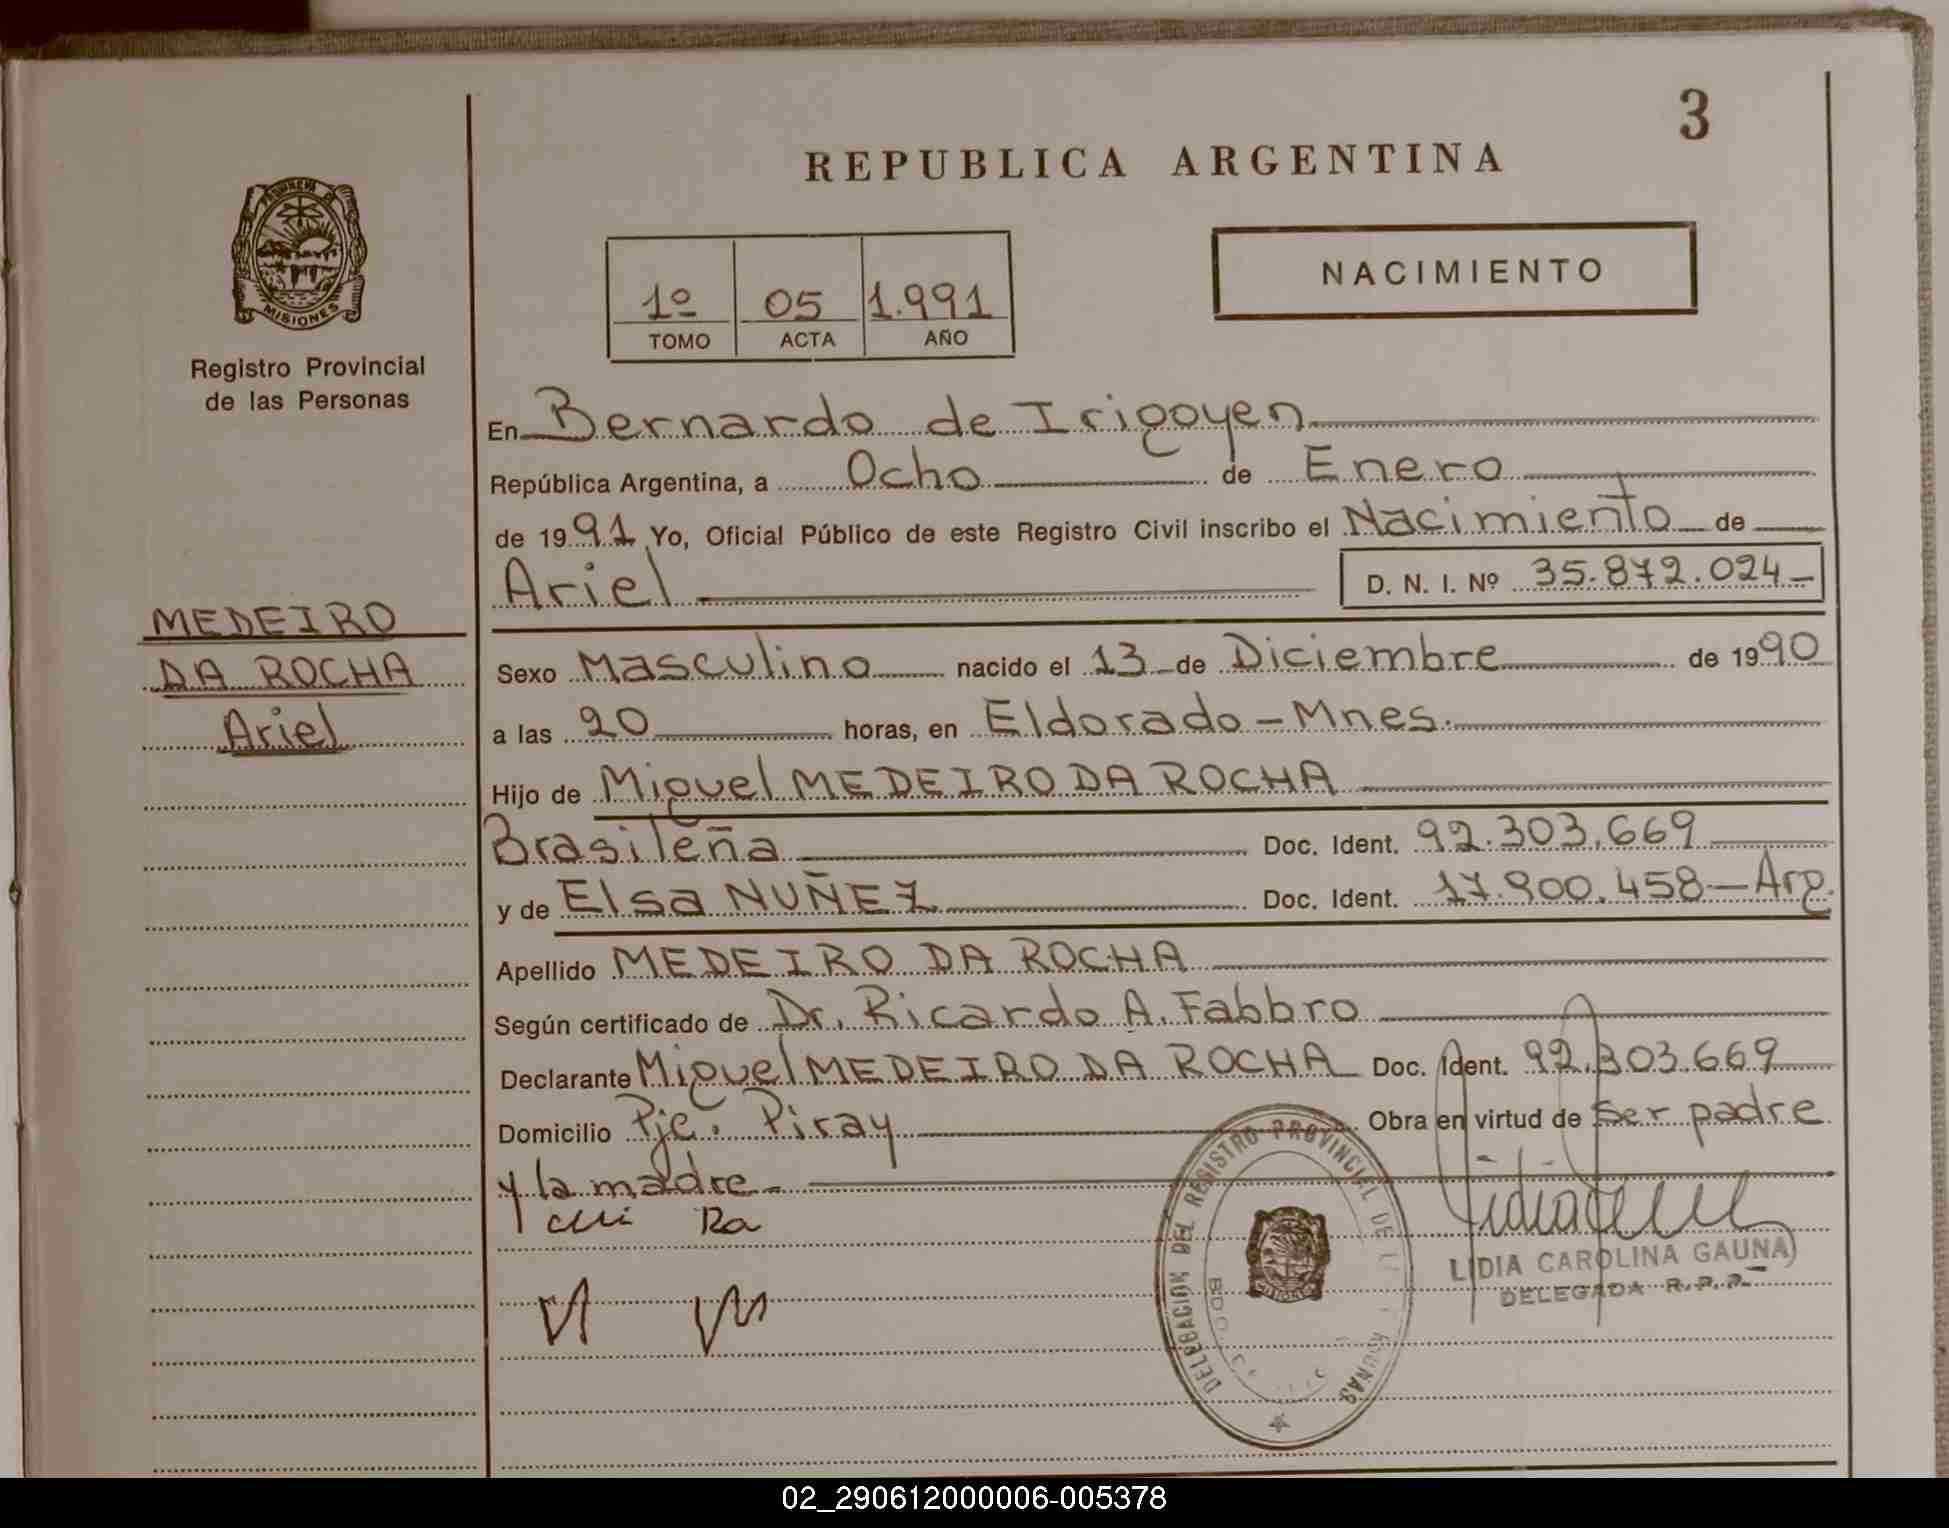 3
REPUBLICA ARGENTINA
NACIMIENTO
1º 05 1.991
TOMO ACTA AÑO
MISIONES
Registro Provincial
de las Personas
En Bernardo de Irigoyen
República Argentina, a Ocho de Enero
de 1991 Yo, Oficial Público de este Registro Civil inscribo el Nacimiento de
Ariel D. N. I. Nº 35.872.024
MEDEIRO
DA ROCHA
Ariel
Sexo Masculino nacido el 13 de Diciembre de 1990
a las 20 horas, en Eldorado - Mnes.
Hijo de Miguel MEDEIRO DA ROCHA
Brasileña Doc. Ident. 92.303.669
y de Elsa NUÑEZ Doc. Ident. 17.900.458 - Arg.
Apellido MEDEIRO DA ROCHA
Según certificado de Dr. Ricardo A. Fabbro
Declarante Miguel MEDEIRO DA ROCHA Doc. Ident. 92.303.669
Domicilio Pje. Piray Obra en virtud de ser padre
y la madre
DELEGACION DEL REGISTRO PROVINCIAL DE
LIDIA CAROLINA GAUNA
DELEGADA R.P.P.
02_290612000006-005378